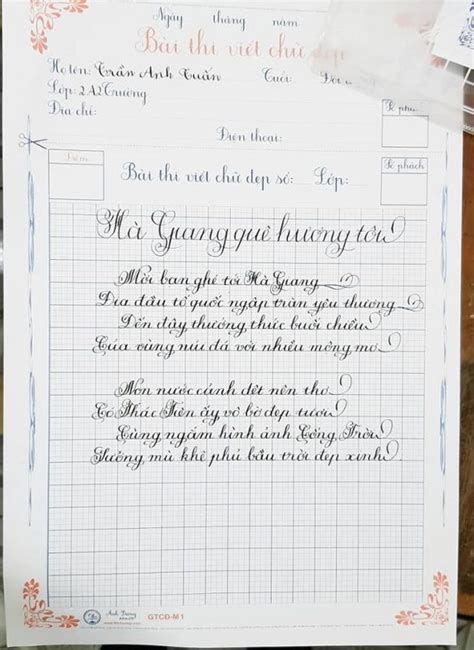 Ngày tháng năm
Bài thi viết chữ đẹp
Họ tên: Trần Anh Tuấn Tuổi:
Lớp: 2A2 Trường
Địa chỉ:
Số phách
Điện thoại:
Điểm
Số phách
Bài thi viết chữ đẹp số: Lớp:
Hà Giang quê hương tôi
Mời bạn ghé tới Hà Giang
Địa đầu tổ quốc ngập tràn yêu thương
Đến đây thưởng thức buổi chiều
Của vùng núi đá với nhiều mộng mơ
Non nước cảnh dệt nên thơ
Có Thác Tiên ấy vô bờ đẹp tươi
Cùng ngắm hình ảnh Cổng Trời
Sương mù khẽ phủ bầu trời đẹp xinh
Ánh Dương
GTCD-M1